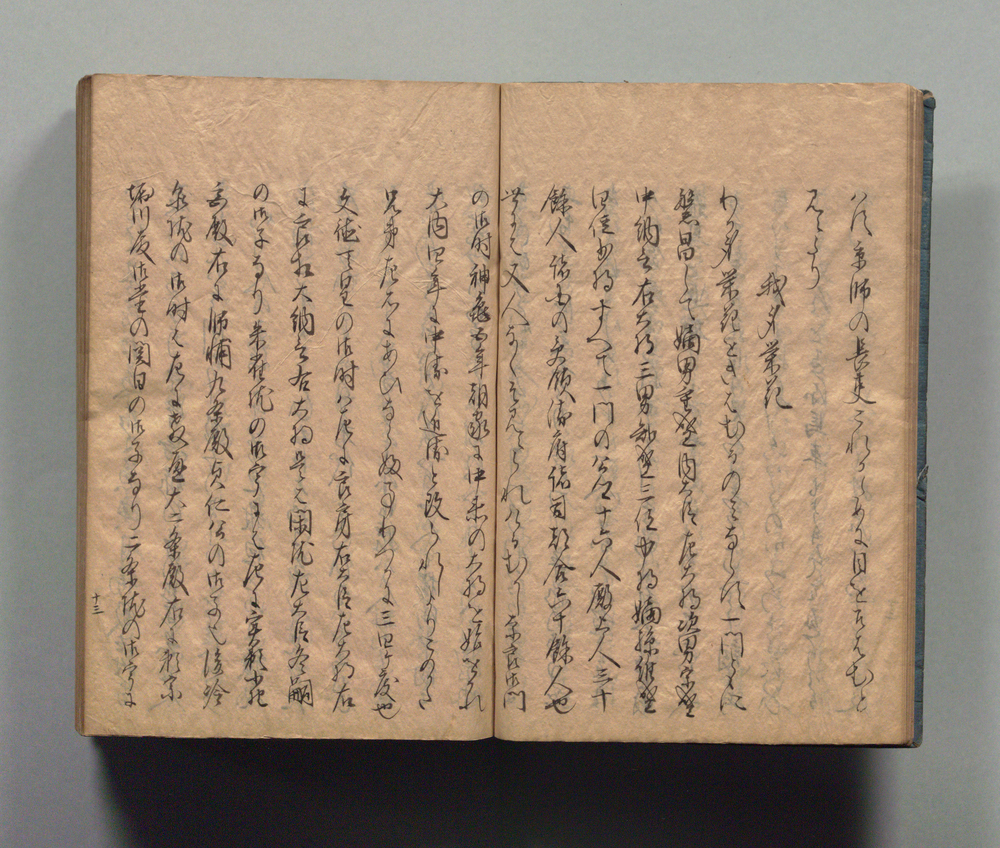 は京師の長吏これかために目をそはむと
見えたり
我身栄花
わか身栄花をきはむるのみならす一門ともに
繁昌して嫡男重盛内大臣左大将次男宗盛
中納言右大将三男知盛三位中将嫡孫維盛
四位少将すへて一門の公卿十六人殿上人三十
餘人諸国の受領衛府諸司都合六十餘人也
世には又人なくそ見えられけるむかし奈良御門
の御時神亀五年朝家に中衛の大将を始をかれ
大同四年に中衛を近衛と改られしよりこのかた
兄弟左右にあひならふ事わつかに三四ヶ度也
文徳天皇の御時は左に良房右大臣左大将右
に良相大納言右大将是は閑院左大臣冬嗣
の御子なり朱雀院の御宇には左に実頼小野
宮殿右に師輔九条殿貞仁公の御子也後冷
泉院の御時は左に教通大二条殿右に頼宗
堀川殿御堂の関白の御子なり二条院の御宇に
十三